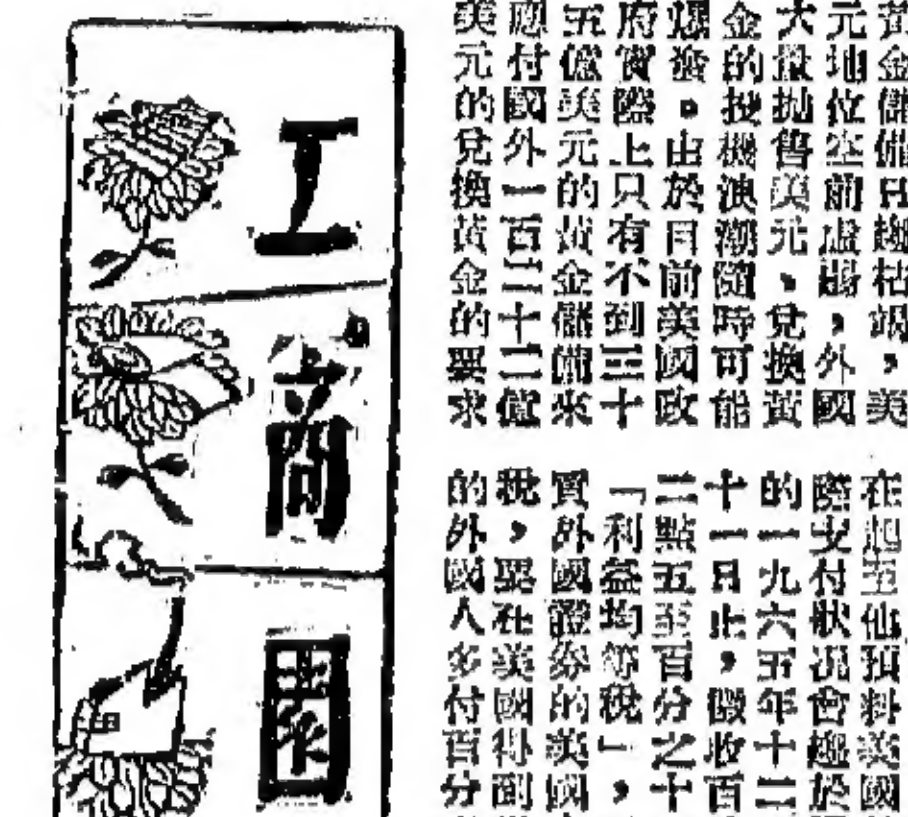 黃金儲備日趨枯竭，美
元地位空前虛弱，外國
大量拋售美元、兌換黃
金的投機浪潮隨時可能
爆發。由於目前美國政
府實際上只有不到三十
五億美元的黃金儲備來
應付國外一百三十二億
美元的兌換黃金的要求
在起至他預料美國
際支付狀況會趨於
的一九六五年十二
十一日止，徵收百
二點五至百分之十
「利益均等稅」，
買外國證券的美國
稅，要在美國得到
的外國人多付百分
工商園